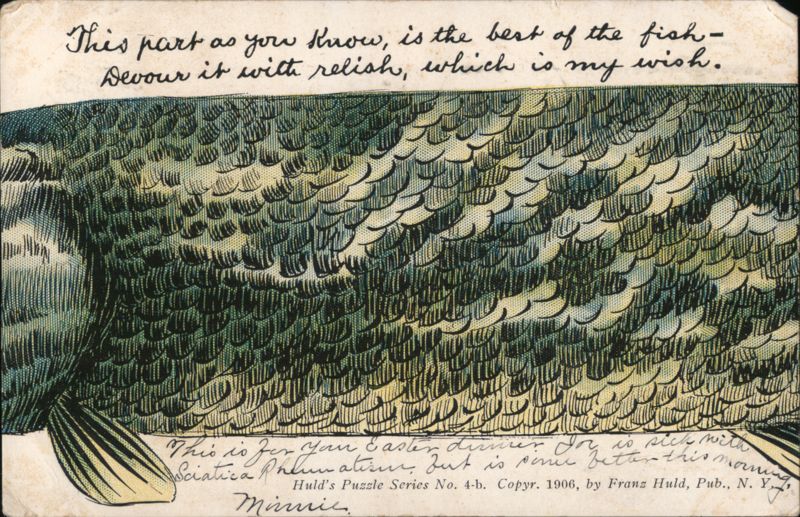 This part as you know, is the best of the fish—
Devour it with relish, which is my wish.
This is for your Easter dinner Joe is sick with
Sciatica Rheumatism, but is some better this morning,
Huld's Puzzle Series No. 4-b. Copyr. 1906, by Franz Huld, Pub., N. Y.
Minnie.